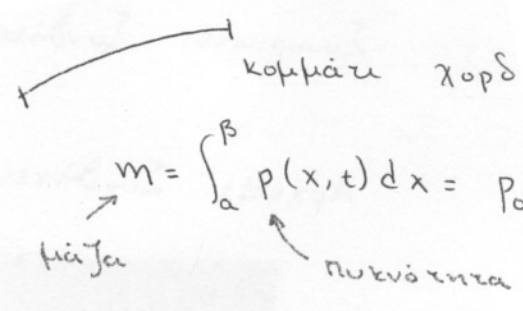 κομμάτι χορδ
m = ∫_α^β ρ(x,t) dx = ρ₀
μάζα
πυκνότητα